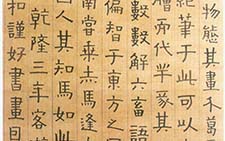 物態其畫不萬
絕筆于此可以
代半豕其
數數解六畜語
偏知于東方之
南嘗乘赤馬逢
人其知馬如此
乾隆三年客
和謹好書畫曰